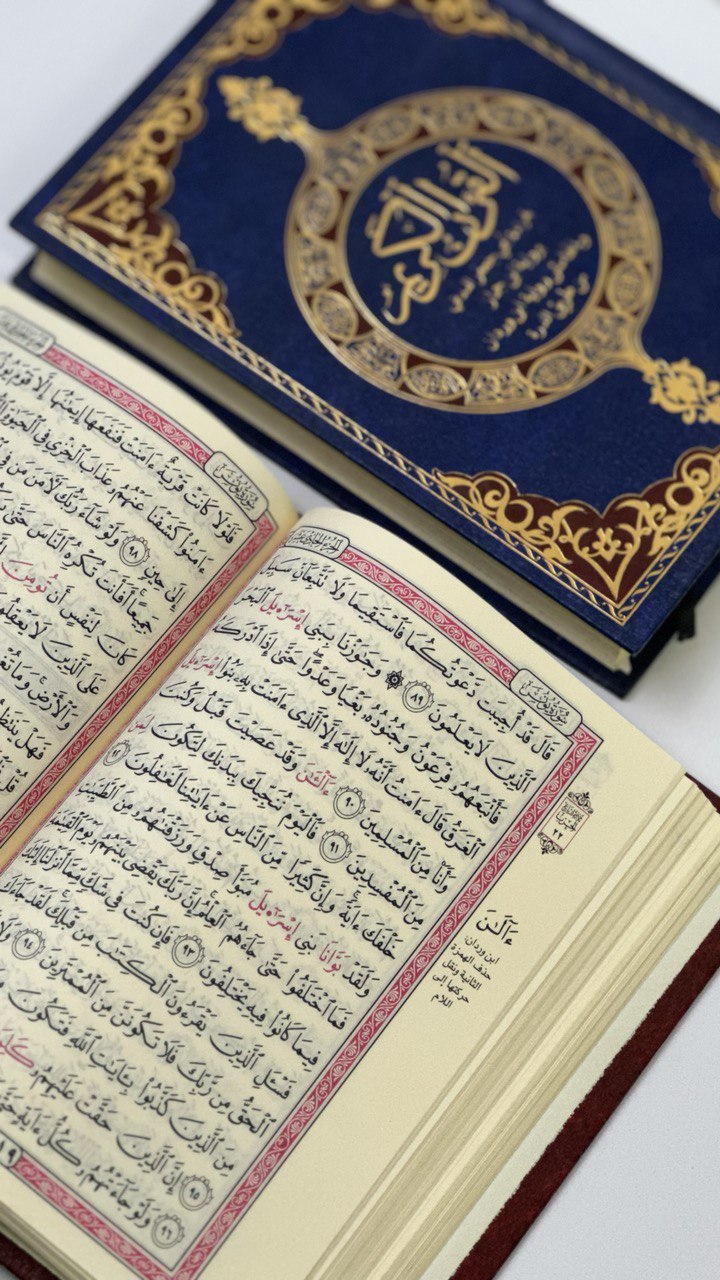 القرآن الكريم
قراءة أبي جعفر المدني
برواية ابن جماز
وبالهامش رواية ابن وردان
من طريق الدرة
سُورَةُ يُونُسَ
فَلَوْلَا كَانَتْ قَرْيَةٌ ءَامَنَتْ فَنَفَعَهَا إِيمَٰنُهَا إِلَّا قَوْمَ يُونُسَ
ءَامَنُوا۟ كَشَفْنَا عَنْهُمُۥ عَذَابَ ٱلْخِزْىِ فِى ٱلْحَيَوٰةِ
إِلَىٰ حِينٍ ٩٨ وَلَوْ شَآءَ رَبُّكَ لَءَامَنَ مَن فِى
جَمِيعًا أَفَأَنتَ تُكْرِهُ ٱلنَّاسَ حَتَّىٰ
كَانَ لِنَفْسٍ أَن تُومِنَ
عَلَى ٱلَّذِينَ لَا يَعْقِلُونَ
وَٱلْأَرْضِ وَمَا تُغْنِى
فَهَلْ يَنتَظِرُونَ
قُلْ
سُورَةُ يُونُسَ
قَالَ قَدْ أُجِيبَت دَّعْوَتُكُمَا فَٱسْتَقِيمَا وَلَا تَتَّبِعَآنِّ سَبِيلَ
ٱلَّذِينَ لَا يَعْلَمُونَ ٨٩ ۞ وَجَٰوَزْنَا بِبَنِىٓ إِسْرَٰٓءِيلَ ٱلْبَحْرَ
فَأَتْبَعَهُمُۥ فِرْعَوْنُ وَجُنُودُهُۥ بَغْيًا وَعَدْوًا حَتَّىٰٓ إِذَآ أَدْرَكَهُ
ٱلْغَرَقُ قَالَ ءَامَنتُ أَنَّهُۥ لَآ إِلَٰهَ إِلَّا ٱلَّذِىٓ ءَامَنَتْ بِهِۦ بَنُوٓا۟ إِسْرَٰٓءِيلَ
وَأَنَا۠ مِنَ ٱلْمُسْلِمِينَ ٩٠ ءَآلْـَٰٔنَ وَقَدْ عَصَيْتَ قَبْلُ وَكُنتَ
مِنَ ٱلْمُفْسِدِينَ ٩١ فَٱلْيَوْمَ نُنَجِّيكَ بِبَدَنِكَ لِتَكُونَ لِمَنْ
خَلْفَكَ ءَايَةً وَإِنَّ كَثِيرًا مِّنَ ٱلنَّاسِ عَنْ ءَايَٰتِنَا لَغَٰفِلُونَ ٩٢
وَلَقَدْ بَوَّانَا بَنِىٓ إِسْرَٰٓءِيلَ مُبَوَّأَ صِدْقٍ وَرَزَقْنَٰهُمُۥ مِنَ ٱلطَّيِّبَٰتِ
فَمَا ٱخْتَلَفُوا۟ حَتَّىٰ جَآءَهُمُ ٱلْعِلْمُ إِنَّ رَبَّكَ يَقْضِى بَيْنَهُمُۥ يَوْمَ ٱلْقِيَٰمَةِ
فِيمَا كَانُوا۟ فِيهِ يَخْتَلِفُونَ ٩٣ فَإِن كُنتَ فِى شَكٍّ مِّمَّآ أَنزَلْنَآ إِلَيْكَ
فَسْـَٔلِ ٱلَّذِينَ يَقْرَءُونَ ٱلْكِتَٰبَ مِن قَبْلِكَ لَقَدْ جَآءَكَ
ٱلْحَقُّ مِن رَّبِّكَ فَلَا تَكُونَنَّ مِنَ ٱلْمُمْتَرِينَ ٩٤ وَلَا
مِنَ ٱلَّذِينَ كَذَّبُوا۟ بِـَٔايَٰتِ ٱللَّهِ فَتَكُونَ
٩٥ إِنَّ ٱلَّذِينَ حَقَّتْ عَلَيْهِمُۥ
وَلَوْ جَآءَتْهُمُۥ كُلُّ ءَايَةٍ حَتَّىٰ
٩٦
الحزب
٢٢
ءَآلَٰنَ
ابن وردان:
حذف الهمزة
الثانية ونقل
حركتها إلى
اللام